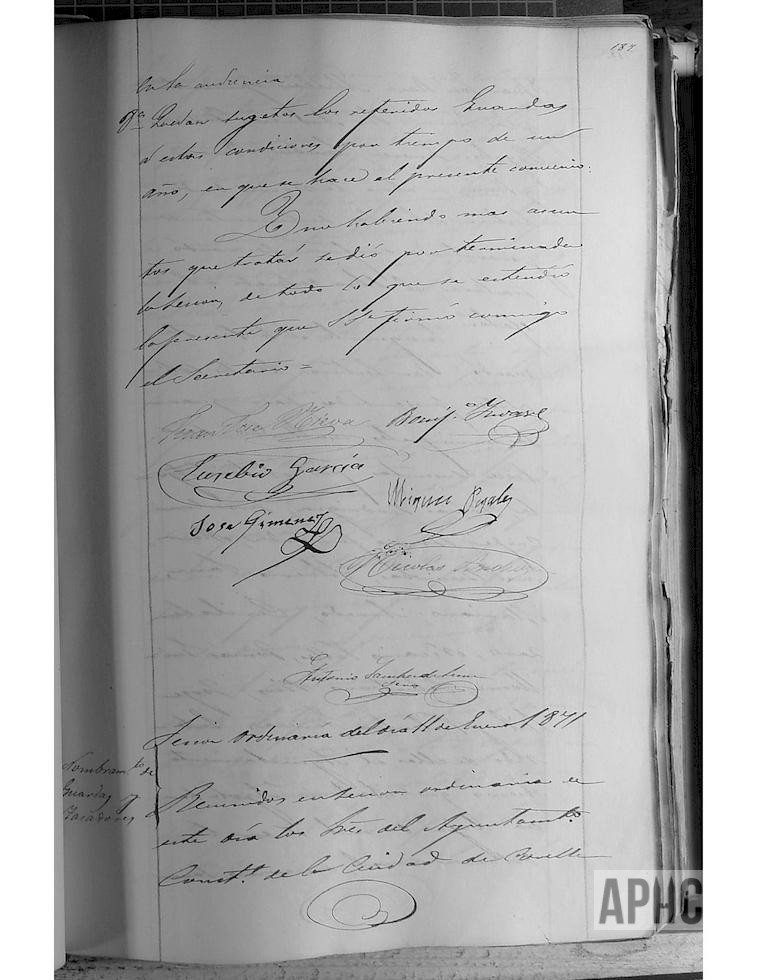 187.
en la audiencia
8ª Quedan sugetos los referidos Guardas
á estas condiciones por tiempo de un
año, en que se hace el presente convenio.
Y no habiendo mas asun
tos que tratar se dió por terminada
la sesion, de todo lo que se estendió
la presente que SSª firmó conmigo
el Secretario =
Juan José
Bonifº
Eusebio Garcia
Miguel
Jose Gimenez
Nicolas
Antonio
Srio
Sesion ordinaria del dia 11 de Enero 1871
Nombramto de
Guardas y
Tasadores
Reunidos en sesion ordinaria en
este dia los Sres del Ayuntamto
Constl de la Ciudad de
APHC